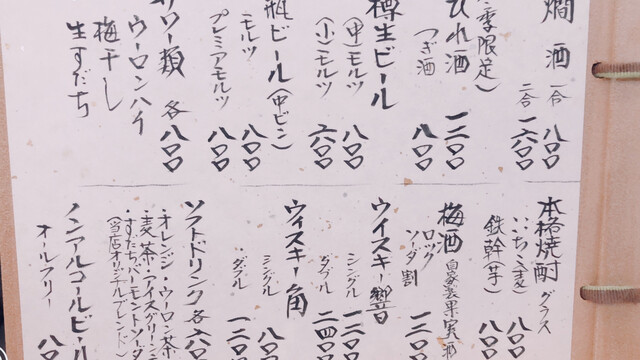 燗酒 一合 八〇〇
二合 一六〇〇
季限定)
ひれ酒 一二〇〇
つぎ酒 八〇〇
樽生ビール
(中)モルツ 八〇〇
(小)モルツ 六〇〇
瓶ビール(中ビン)
モルツ 八〇〇
プレミアモルツ 八〇〇
サワー類 各八〇〇
ウーロンハイ
梅干し
生すだち
本格焼酎 グラス
いいちこ(麦) 八〇〇
鉄幹(芋) 八〇〇
梅酒 自家製果実酒
ロック
ソーダ割 一二〇〇
ウイスキー響
シングル 一二〇〇
ダブル 二四〇〇
ウィスキー角
シングル 八〇〇
ダブル 一二〇〇
ソフトドリンク 各六〇〇
・オレンジ・ウーロン茶
・麦茶・アイスグリーン
・すだちバーモントソーダ
(当店オリジナルブレンド)
ノンアルコールビール
オールフリー 八〇